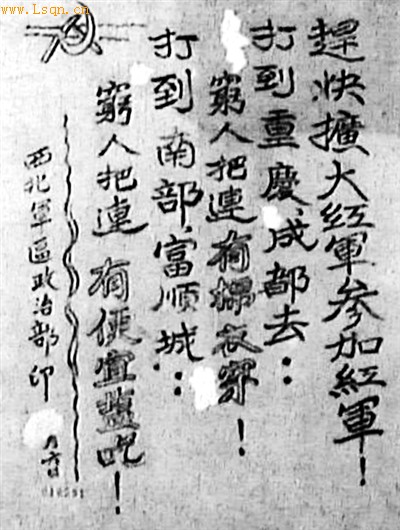 www.Lsqn.cn
趕快擴大紅軍参加紅軍！
打到重慶、成都去：
窮人把連有棉衣穿！
打到南部、富順城：
窮人把連有便宜鹽吃！
西北軍區政治部印